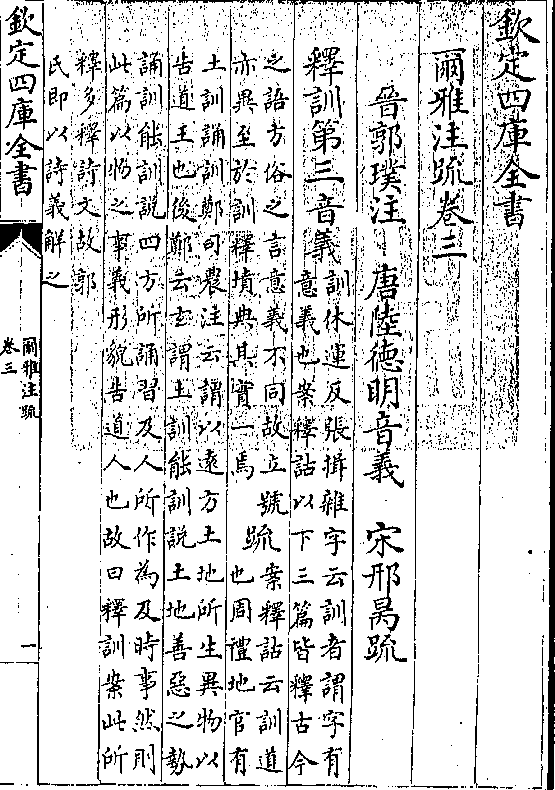 欽定四庫全書
爾雅注疏卷三
晉郭璞注　唐陸德明音義　宋邢昺疏
釋訓第三音義
訓休運反張揖雜字云訓者謂字有
意義也案釋詁以下三篇皆釋古今
之語方俗之言意義不同故立號
亦異至於訓釋墳典其實一焉
疏
案釋詁云訓道
也周禮地官有
土訓誦訓鄭司農注云謂以遠方土地所生異物以
告道王也後鄭云玄謂土訓能訓說土地善惡之勢
誦訓能訓說四方所誦習及人所作為及時事然則
此篇以物之事義形貌告道人也故曰釋訓案此所
釋多釋詩文故郭
氏即以詩義解之
欽定四庫全書
爾雅注疏
卷三
一